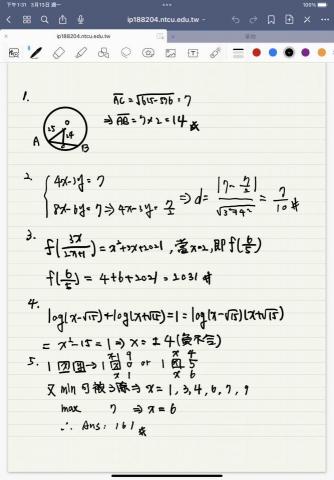 下午1:31 3月13日 週一
100%
ip188204.ntcu.edu.tw
ip188204.ntcu.edu.tw
1.
AC = √625-576 = 7
⇒ AB = 7×2 = 14
25 24
A B
2. { 4x-3y=7
8x-6y=7 ⇒ 4x-3y=7/2 ⇒ d = |7-7/2| / √3²+4² = 7/10
3.
f(3x/2x+1) = x²+3x+2021, 當x=2, 即f(6/5)
f(6/5) = 4+6+2021 = 2031
4.
log(x-√15)+log(x+√15)=1=log(x-√15)(x+√15)
= x²-15=1 ⇒ x=±4(負不合)
5.
x 9 x 4
1 0 or 1 5
x 1 x 6
⇒ x=1,3,4,6,7,9
max 7 ⇒ x=6
∴ Ans: 161